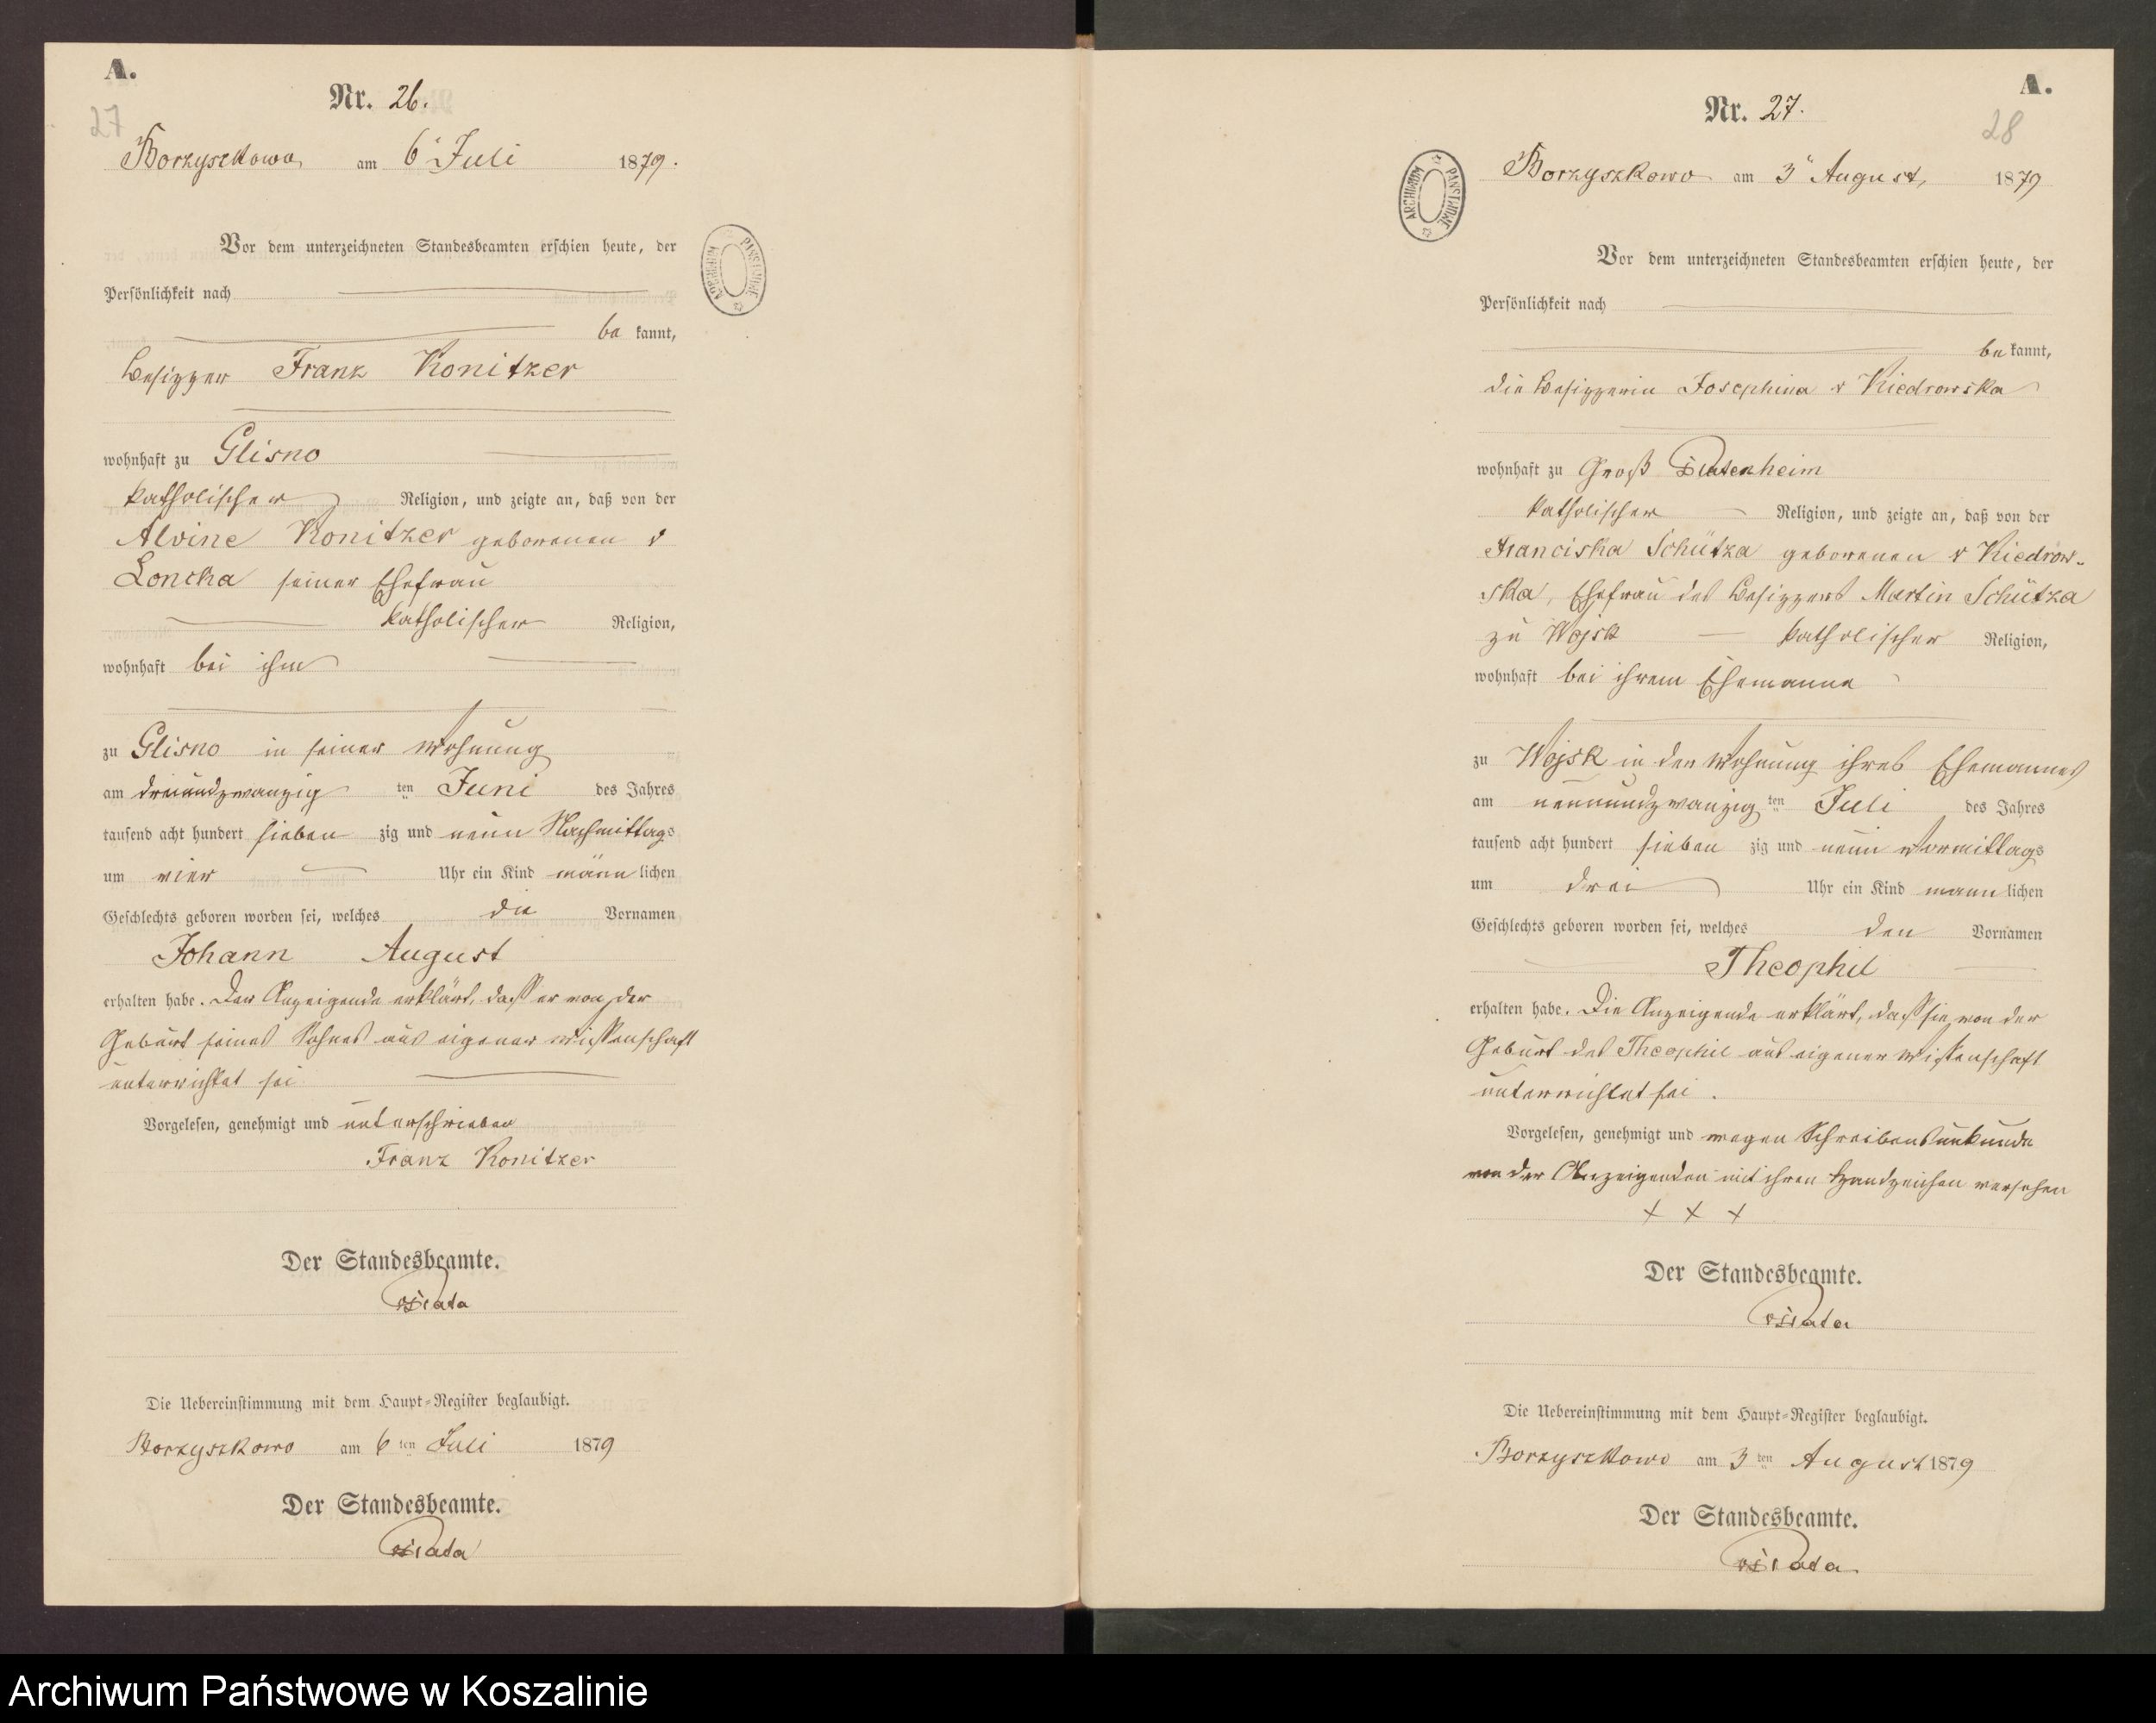 A.
27
Nr. 26.
Borzyszkowo am 6ᵗ Juli 1879.
Vor dem unterzeichneten Standesbeamten erschien heute, der
Persönlichkeit nach
be kannt,
Besitzer Franz Konitzer
wohnhaft zu Glisno
katholischer Religion, und zeigte an, daß von der
Alvine Konitzer geborenen v
Loncka seiner Ehefrau
katholischer Religion,
wohnhaft bei ihm
zu Glisno in seiner Wohnung
am dreiundzwanzig ten Juni des Jahres
tausend acht hundert sieben zig und neun Nachmittags
um vier Uhr ein Kind männ lichen
Geschlechts geboren worden sei, welches die Vornamen
Johann August
erhalten habe. Der Anzeigende erklärt, daß er von der
Geburt seines Sohnes aus eigener Wissenschaft
unterrichtet sei
Vorgelesen, genehmigt und unterschrieben
Franz Konitzer
Der Standesbeamte.
Die Uebereinstimmung mit dem Haupt-Register beglaubigt.
Borzyszkowo am 6 ten Juli 1879
Der Standesbeamte.
ARCHIWUM PAŃSTWOWE
A.
28
Nr. 27.
Borzyszkowo am 3ᵗ August, 1879
Vor dem unterzeichneten Standesbeamten erschien heute, der
Persönlichkeit nach
be kannt,
die Besitzerin Josephina v Kiedrowska
wohnhaft zu Groß
katholischer Religion, und zeigte an, daß von der
Franciska Schütza geborenen v Kiedrow-
ska, Ehefrau des Besitzers Martin Schütza
zu Wojsk katholischer Religion,
wohnhaft bei ihrem Ehemanne
zu Wojsk in der Wohnung ihres Ehemannes
am neunundzwanzig ten Juli des Jahres
tausend acht hundert sieben zig und neun Vormittags
um drei Uhr ein Kind männ lichen
Geschlechts geboren worden sei, welches den Vornamen
Theophil
erhalten habe. Die Anzeigende erklärt, daß sie von der
Geburt des Theophil aus eigener Wissenschaft
unterrichtet sei.
Vorgelesen, genehmigt und wegen Schreibensunkunde
von der Anzeigenden mit ihren Handzeichen versehen
+ + +
Der Standesbeamte.
Die Uebereinstimmung mit dem Haupt-Register beglaubigt.
Borzyszkowo am 3 ten August 1879
Der Standesbeamte.
ARCHIWUM PAŃSTWOWE
Archiwum Państwowe w Koszalinie